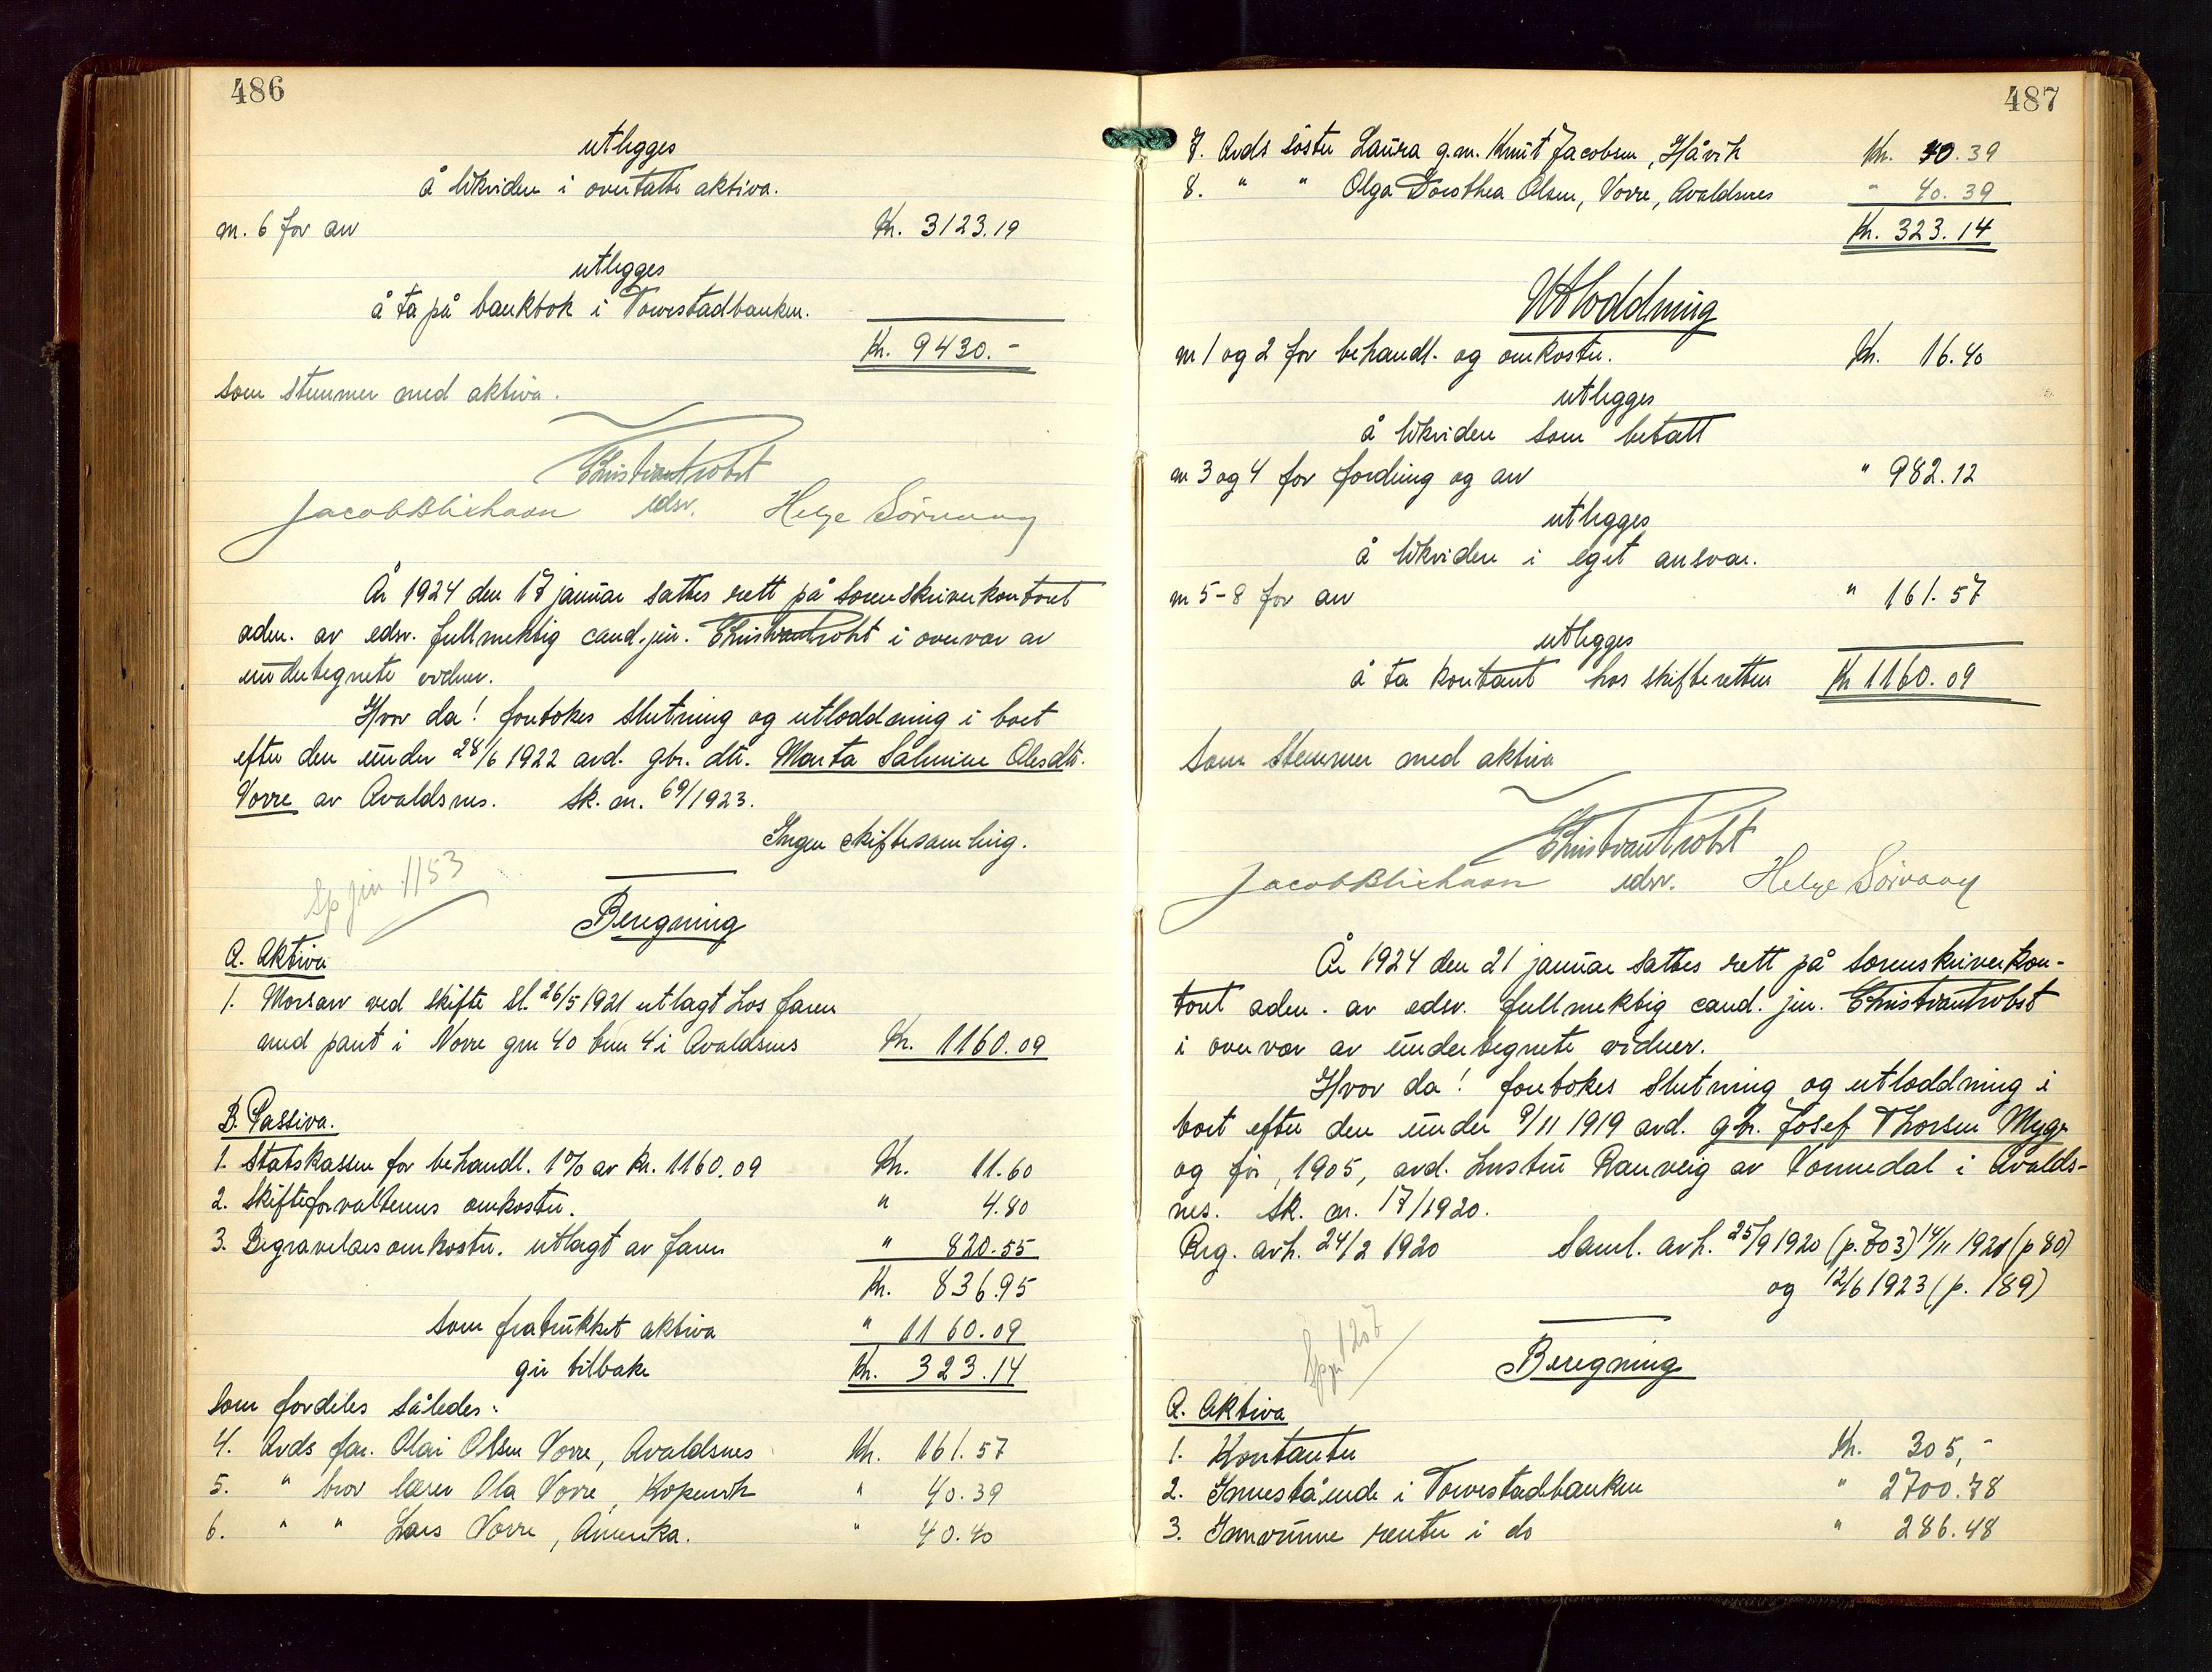 486
utlegges
å likvidere i overtatte aktiva.
nr. 6 for arv Kr. 3123.19
utlegges
å ta på bankbok i Torvestadbanken.
Kr. 9430.-
som stemmer med aktiva.
edsv. Helge Sørvaag
År 1924 den 17 januar sattes rett på sorenskriverkontoret
adm. av edsv. fullmektig cand. jur. i overvær av
undertegnete vidner.
Hvor da! foretokes slutning og utlodding i boet
efter den under 28/6 1922 avd. gbr. dtr. Marta Salmine Olesdtr.
Vorre av Avaldsnes. Sk. nr. 69/1923.
Ingen skiftesamling.
Sp jnr 1153
Beregning
A. Aktiva
1. Morsarv ved skifte sl. 26/5 1921 utlagt hos faren
med pant i Vorre gnr 40 bnr 4 i Avaldsnes Kr. 1160.09
B. Passiva.
1. Statskassen for behandl. 1% av kr. 1160.09 Kr. 11.60
2. Skifteforvalterens omkostn. " 4.80
3. Begravelsesomkostn. utlagt av faren " 820.55
Kr. 836.95
som fratrukket aktiva " 1160.09
gir tilbake Kr. 323.14
som fordeles således:
4. Avds far. Olai Olsen Vorre, Avaldsnes Kr. 161.57
5. " bror lærer Ola Vorre, Kopervik " 40.39
6. " " Lars Vorre, Amerika. " 40.40
487
7. Avds søster Laura g.m. Knut Jacobsen, Håvik Kr. 40.39
8. " " Olga Dorothea Olsen, Vorre, Avaldsnes " 40.39
Kr. 323.14
Utlodding
nr 1 og 2 for behandl. og omkostn. Kr. 16.40
utlegges
å likvidere som betalt
nr 3 og 4 for fordring og arv " 982.12
utlegges
å likvidere i eget ansvar.
nr 5-8 for arv " 161.57
utlegges
å ta kontant hos skifteretten Kr 1160.09
som stemmer med aktiva
edsv. Helge Sørvaag
År 1924 den 21 januar sattes rett på sorenskriverkon-
toret adm. av edsv. fullmektig cand. jur.
i overvær av undertegnete vidner.
Hvor da! foretokes slutning og utlodding i
boet efter den under 9/11 1919 avd. gbr. Josef Thorsen Myge
og før, 1905, avd. hustru Ranveig av Vormedal i Avalds-
nes. Sk. nr. 17/1920.
Reg. avh. 24/2 1920 Saml. avh. 25/9 1920 (p. 703) 14/11 1921 (p 80)
og 12/6 1923 (p. 189)
Sp jnr 1207
Beregning
A. Aktiva
1. Kontanter Kr. 305,-
2. Innestående i Torvestadbanken " 2700.78
3. Innvunne renter i do " 286.48